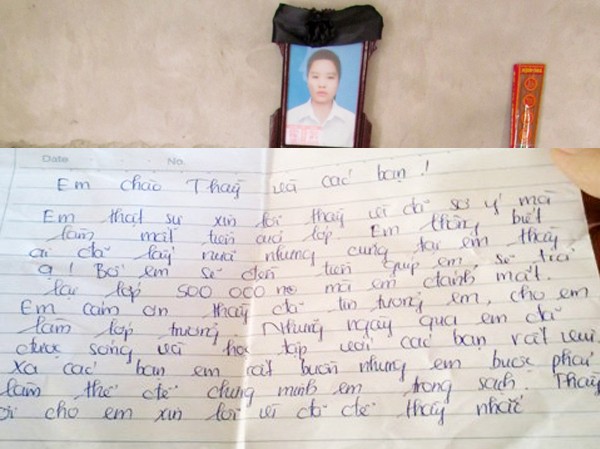 Date No.
Em chào Thầy và các bạn!
Em thật sự xin lỗi thầy vì đã sơ ý mà
làm mất tiền của lớp. Em không biết
ai đã lấy nưa nhưng cũng tại em thầy
ạ! Bố em sẽ đền tiền giúp em, sẽ trả
lại lớp 500 000 mà em đánh mất.
Em cảm ơn thầy đã tin tưởng em, cho em
làm lớp trưởng. Những ngày qua em đã
được sống và học tập với các bạn rất vui.
Xa các bạn em rất buồn nhưng em buộc phải
làm thế để chứng minh em trong sạch. Thầy
ơi cho em xin lỗi vì đã để thầy nhắc